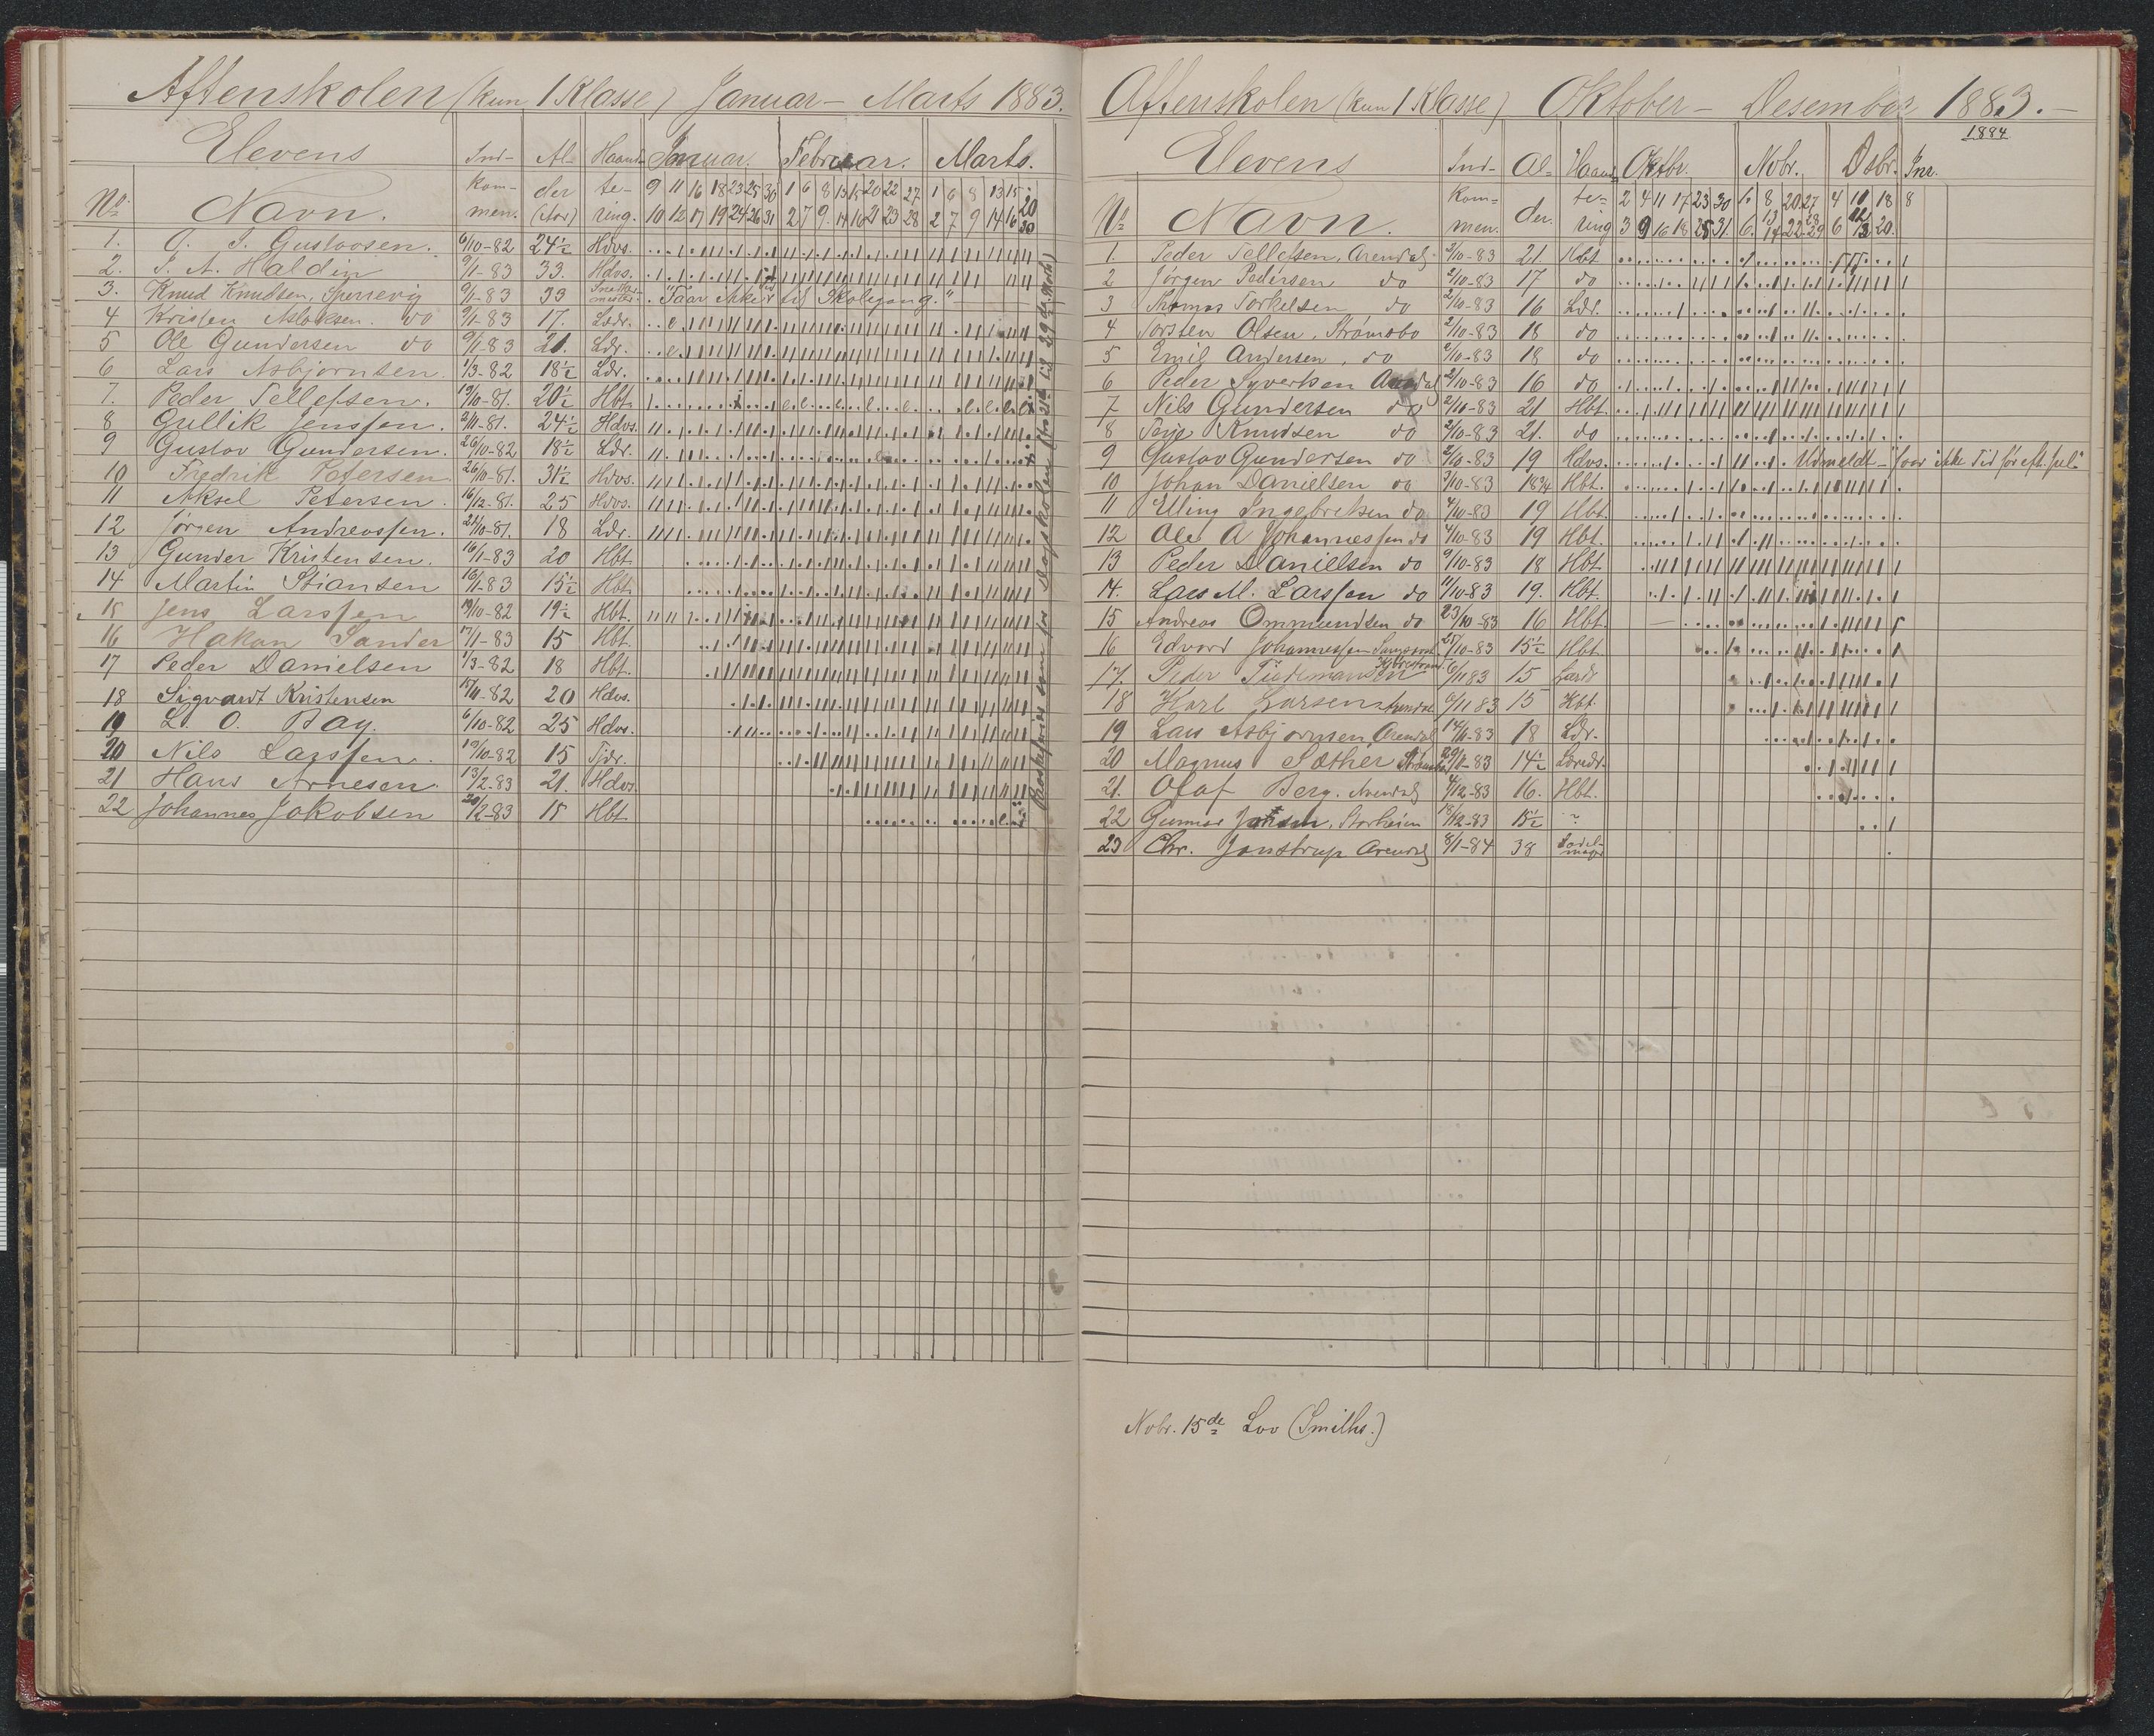 Aftenskolen (kun 1 Klasse) Januar – Marts 1883.
Elevens Ind- Al- Haand- Januar. Februar. Marts.
No. Navn. kom- men. der (Aar) te- ring.
9 11 16 18 23 25 30 1 6 8 13 15 20 22 27 1 6 8 13 15 20
10 12 17 19 24 26 31 2 7 9 14 16 21 23 28 2 7 9 14 16 30
1. O. J. Gustavsen. 6/10-82 24½ Hdvs.
2. J. A. Haldin 9/1-83 33. Hdvs.
3. Knud Knudsen, Sperrevig 9/1-83 33 "Faar ikke Tid til Skolegang."
4 Kristen Aslaksen. do 9/1-83 17. Ldr.
5 Ole Gundersen do 9/1-83 21. Ldr.
6 Lars Asbjørnsen. 1/3-82 18½ Ldr.
7. Peder Tellefsen. 19/10-81. 20½ Hbt.
8 Gullik Jenssen. 2/11-81. 24½ Hdvs.
9 Gustav Gundersen. 26/10-82 18½ Ldr.
10 Fredrik Petersen 26/10-81. 31½ Hdvs.
11 Aksel Petersen. 16/12-81. 25 Hdvs.
12 Jørgen Andreassen. 21/10-81. 18 Ldr.
13 Gunder Kristensen. 16/1-83 20 Hbt.
14 Martin Stiansen 16/1-83 15½ Hbt.
15 Jens Larssen 19/10-82 19½ Hbt.
16 Hakon Sander 17/1-83 15 Hbt.
17 Peder Danielsen 1/3-82 18 Hbt.
18 Sigvardt Kristensen 82 20 Hdvs.
19 L. O. Bay. 6/10-82 25 Hdvs.
20 Nils Larssen. 19/10-82 15 Tjdr.
21 Hans Arnesen. 13/2-83 21. Hdvs.
22 Johannes Jakobsen 20/2-83 15 Hbt.
Aftenskolen (kun 1 Klasse) Oktober – Desember 1883.
1884
Elevens Ind- Al- Haand- Oktbr. Nvbr. Dsbr. Jnr.
No. Navn. kom- men. der. te- ring
2 4 11 17 23 30 1. 8 20 27 4 10 18 8
13 28 12
3 9 16 18 25 31. 6. 14 22 29 6 13 20.
1. Peder Tellefsen, Arendal. 2/10-83 21. Hbt
2 Jørgen Pedersen do 2/10-83 17 do
3 Thomas Torkelsen do 2/10-83 16 Ldr.
4 Torsten Olsen, Strømsbo 2/10-83 18 do
5 Emil Andersen, do 2/10-83 18 do
6 Peder Syvertsen Arendal 2/10-83 16 do
7 Nils Gundersen do 2/10-83 21 Hbt.
8 Terje Knudsen do 2/10-83 21. do
9 Gustav Gundersen do 2/10-83 19 Hdvs. Udmeldt – "faar ikke Tid før eft. Jul"
10 Johan Danielsen do 3/10-83 18¾ Hbt.
11 Elling Ingebretsen do 4/10-83 19 Hbt.
12 Ole A Johannessen do 4/10-83 19 Hbt.
13 Peder Danielsen do 9/10-83 18 Hbt.
14. Lars M. Larssen do 11/10-83 19. Hbt.
15 Andreas Ommundsen do 23/10-83 16 Hbt.
16 Edvard Johannessen 25/10-83 15½ Hbt.
17. Peder Tidemansen 6/11 83 15
18 Karl Larsen Arendal 6/11 83 15 Hbt.
19 Lars Asbjørnsen Arendal 14/11-83 18 Ldr.
20 Magnus Sæther Strømsbo 29/11-83 14½
21. Olaf Berg. Arendal 4/12-83 16. Hbt.
22 Gunnar Jensen, Storheim 18/12-83 15½ "
23 Chr. Jonstrup Arendal 8/1-84 38 Sadel- mager
Nvbr. 15de Lov (Smiths.)